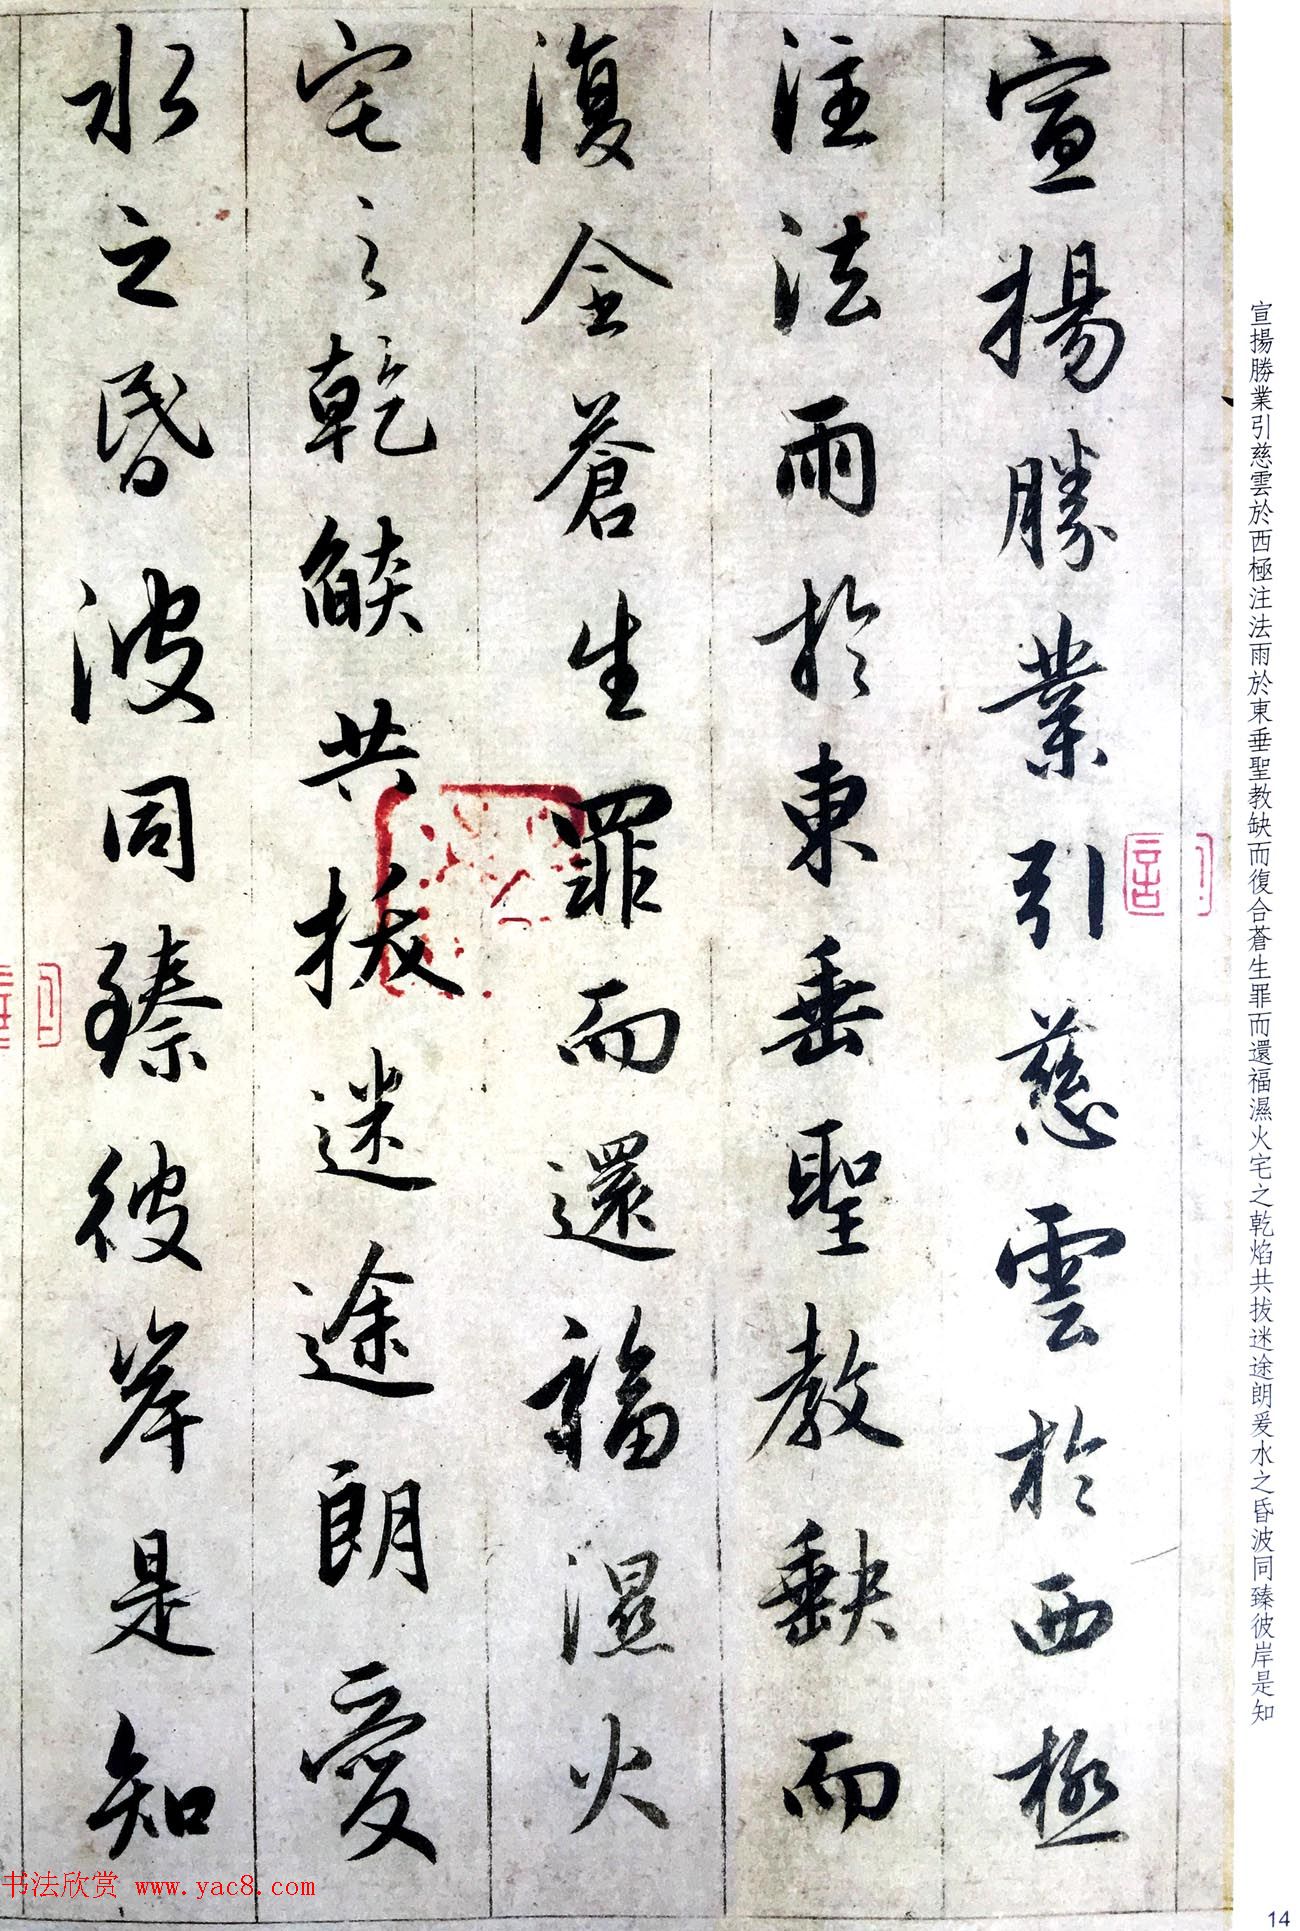 宣揚勝業引慈雲於西極注法雨於東垂聖教缺而復合蒼生罪而還福濕火宅之乾焰共拔迷途朗爰水之昏波同臻彼岸是知
宣揚勝業引慈雲於西極
注法雨於東垂聖教缺而
復全蒼生罪而還福濕火
宅之乾燄共拔迷途朗愛
水之昏波同臻彼岸是知
书法欣赏 www.yac8.com
14